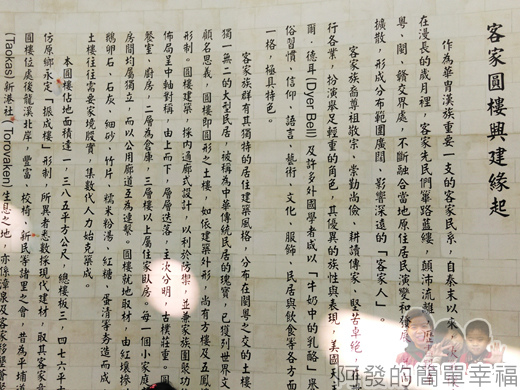 客家圓樓興建緣起
作為華胄漢族重要一支的客家民系，自秦末以來，
在漫長的歲月裡，客家先民們篳路藍縷，顛沛流離，
粵、閩、贛交界處，不斷融合當地原住居民演變和發展
擴散，形成分布範圍廣闊、影響深遠的「客家人」。
客家族裔尊祖敬宗、崇勤尚儉、耕讀傳家、堅苦卓絕，
行各業，扮演舉足輕重的角色，其優異的族性與表現，美國
爾．德耳(Dyer Bell) 及許多外國學者咸以「牛奶中的乳酪」
俗習慣、信仰、語言、藝術、文化、服飾、民居與飲食等各方面
一格，極具特色。
客家族群有其獨特的居住建築風格，分布在閩粵之交的土樓
獨一無二的大型民居，被稱為中華傳統民居的瑰寶，已獲列世界文
顧名思義，圓樓即圓形之土樓，如依建築外形，尚有方樓及五鳳
形制。圓樓建築，採內通廊式設計，以利於防禦，並兼家族團聚功
佈局呈中軸對稱，由上而下，層層迭落，主次分明，古樸莊重。
餐室、廚房，二層為倉庫，三層樓以上屬住家臥房。每一個小家庭
房間均屬獨立，而以公用廊道互為連繫。圓樓就地取材，由紅壤摻
鵝卵石、石灰、細砂、竹片、糯米粉湯、紅糖、蛋清等夯造而成，
土樓往往需要家境殷實，集數代人力始克築成。
本圓樓佔地面積達一，三八五平方公尺，總樓板三，四七六平
仿原鄉永定「振成樓」形制，所異者悉數採現代建材，取其客家
圓樓位處後龍溪北岸，豐富、校椅、新民等諸里之會，昔為平埔
(Taokas) 新港社( Torovaken) 生息之地，亦係漳泉及客家
阿發的簡單幸福